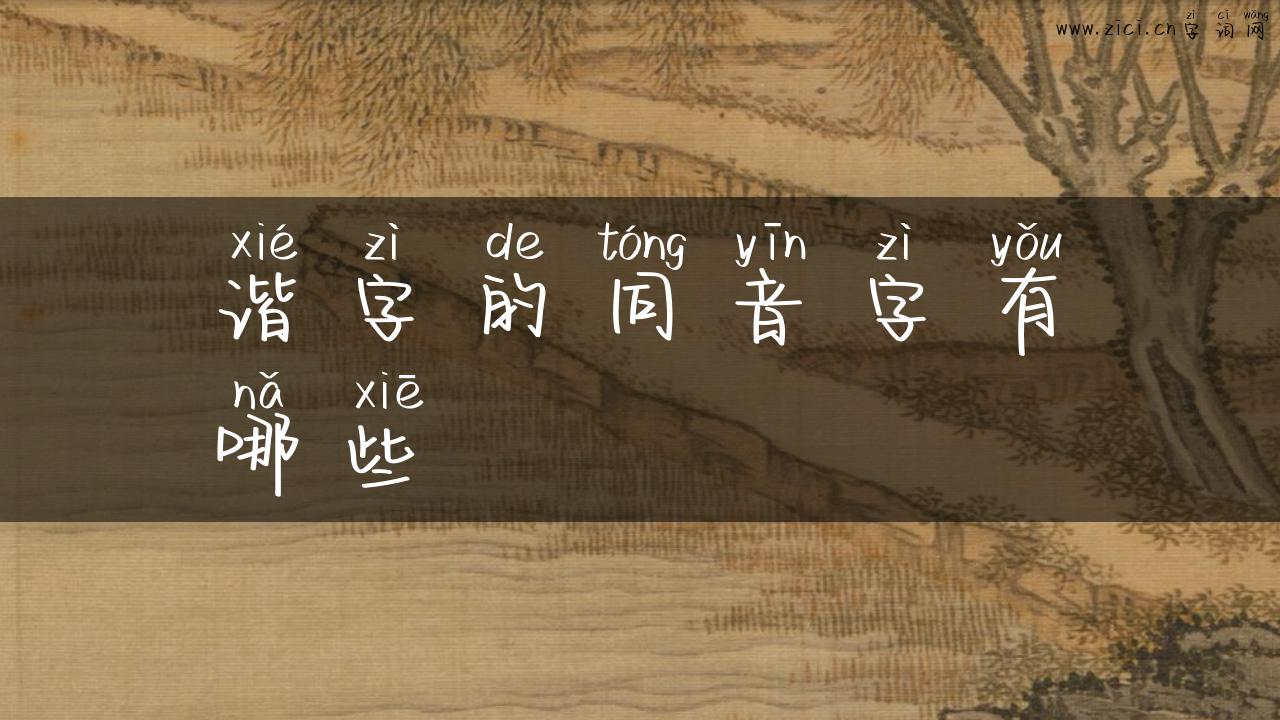 zì cí wǎng
www.zici.cn字词网
xié zì de tóng yīn zì yǒu
谐字的同音字有
nǎ xiē
哪些